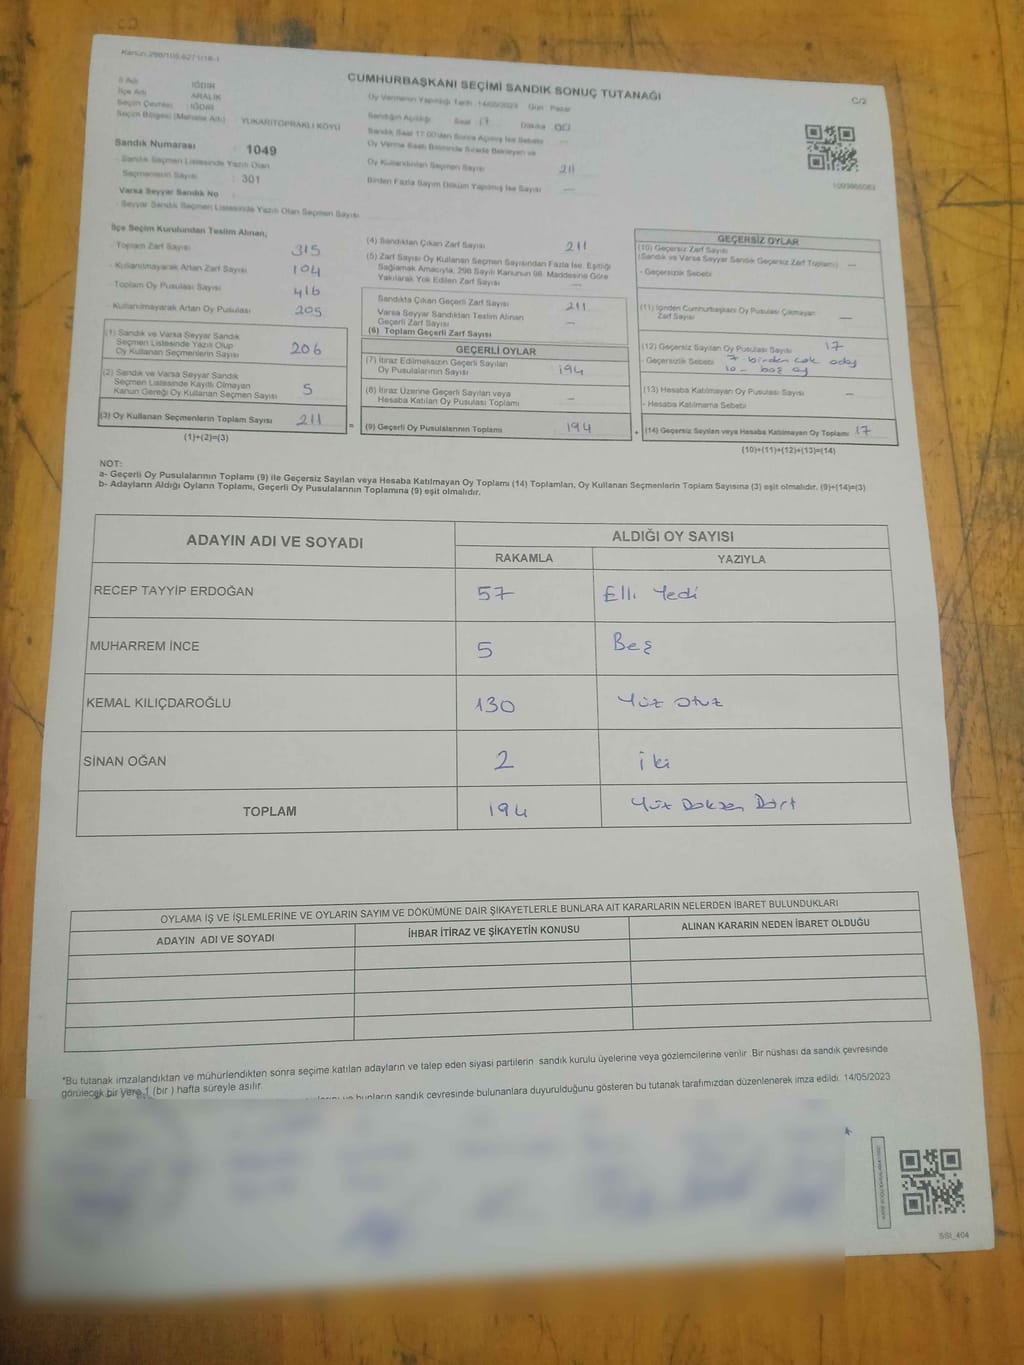 Kanun:298/105,6271/18-1
CUMHURBAŞKANI SEÇİMİ SANDIK SONUÇ TUTANAĞI
C/2
İl Adı IĞDIR
İlçe Adı ARALIK
Seçim Çevresi IĞDIR
Seçim Bölgesi (Mahalle Adı) YUKARITOPRAKLI KÖYÜ
Oy Vermenin Yapıldığı Tarih: 14/05/2023 Gün: Pazar
Sandığın Açıldığı Saat 17 Dakika 00
Sandık Saat 17:00'den Sonra Açılmış İse Sebebi —
Oy Verme Saati Bitiminde Sırada Bekleyen ve
Oy Kullandırılan Seçmen Sayısı 211
Birden Fazla Sayım Döküm Yapılmış İse Sayısı —
Sandık Numarası 1049
- Sandık Seçmen Listesinde Yazılı Olan
Seçmenlerin Sayısı : 301
Varsa Seyyar Sandık No
- Seyyar Sandık Seçmen Listesinde Yazılı Olan Seçmen Sayısı
İlçe Seçim Kurulundan Teslim Alınan;
- Toplam Zarf Sayısı 315
- Kullanılmayarak Artan Zarf Sayısı 104
- Toplam Oy Pusulası Sayısı 416
- Kullanılmayarak Artan Oy Pusulası 205
(1) Sandık ve Varsa Seyyar Sandık
Seçmen Listesinde Yazılı Olup
Oy Kullanan Seçmenlerin Sayısı 206
(2) Sandık ve Varsa Seyyar Sandık
Seçmen Listesinde Kayıtlı Olmayan
Kanun Gereği Oy Kullanan Seçmen Sayısı 5
(3) Oy Kullanan Seçmenlerin Toplam Sayısı 211
(1)+(2)=(3)
(4) Sandıktan Çıkan Zarf Sayısı 211
(5) Zarf Sayısı Oy Kullanan Seçmen Sayısından Fazla İse, Eşitliği
Sağlamak Amacıyla, 298 Sayılı Kanunun 98. Maddesine Göre
Yakılarak Yok Edilen Zarf Sayısı —
Sandıkta Çıkan Geçerli Zarf Sayısı 211
Varsa Seyyar Sandıktan Teslim Alınan
Geçerli Zarf Sayısı —
(6) Toplam Geçerli Zarf Sayısı
GEÇERLİ OYLAR
(7) İtiraz Edilmeksizin Geçerli Sayılan
Oy Pusulalarının Sayısı 194
(8) İtiraz Üzerine Geçerli Sayılan veya
Hesaba Katılan Oy Pusulası Toplamı —
= (9) Geçerli Oy Pusulalarının Toplamı 194
GEÇERSİZ OYLAR
(10) Geçersiz Zarf Sayısı
(Sandık ve Varsa Seyyar Sandık Geçersiz Zarf Toplamı) —
- Geçersizlik Sebebi
(11) İçinden Cumhurbaşkanı Oy Pusulası Çıkmayan
Zarf Sayısı —
(12) Geçersiz Sayılan Oy Pusulası Sayısı 17
- Geçersizlik Sebebi 7 birden çok aday
10 - boş oy
(13) Hesaba Katılmayan Oy Pusulası Sayısı —
- Hesaba Katılmama Sebebi
+ (14) Geçersiz Sayılan veya Hesaba Katılmayan Oy Toplamı 17
(10)+(11)+(12)+(13)=(14)
NOT:
a- Geçerli Oy Pusulalarının Toplamı (9) ile Geçersiz Sayılan veya Hesaba Katılmayan Oy Toplamı (14) Toplamları, Oy Kullanan Seçmenlerin Toplam Sayısına (3) eşit olmalıdır. (9)+(14)=(3)
b- Adayların Aldığı Oyların Toplamı, Geçerli Oy Pusulalarının Toplamına (9) eşit olmalıdır.
ADAYIN ADI VE SOYADI
ALDIĞI OY SAYISI
RAKAMLA YAZIYLA
RECEP TAYYİP ERDOĞAN 57 Elli Yedi
MUHARREM İNCE 5 Beş
KEMAL KILIÇDAROĞLU 130 Yüz Otuz
SİNAN OĞAN 2 iki
TOPLAM 194 Yüz Doksan Dört
OYLAMA İŞ VE İŞLEMLERİNE VE OYLARIN SAYIM VE DÖKÜMÜNE DAİR ŞİKAYETLERLE BUNLARA AİT KARARLARIN NELERDEN İBARET BULUNDUKLARI
ADAYIN ADI VE SOYADI İHBAR İTİRAZ VE ŞİKAYETİN KONUSU ALINAN KARARIN NEDEN İBARET OLDUĞU
*Bu tutanak imzalandıktan ve mühürlendikten sonra seçime katılan adayların ve talep eden siyasi partilerin sandık kurulu üyelerine veya gözlemcilerine verilir. Bir nüshası da sandık çevresinde
görülecek bir yere 1 (bir ) hafta süreyle asılır.
bunların sandık çevresinde bulunanlara duyurulduğunu gösteren bu tutanak tarafımızdan düzenlenerek imza edildi. 14/05/2023
SSI_404